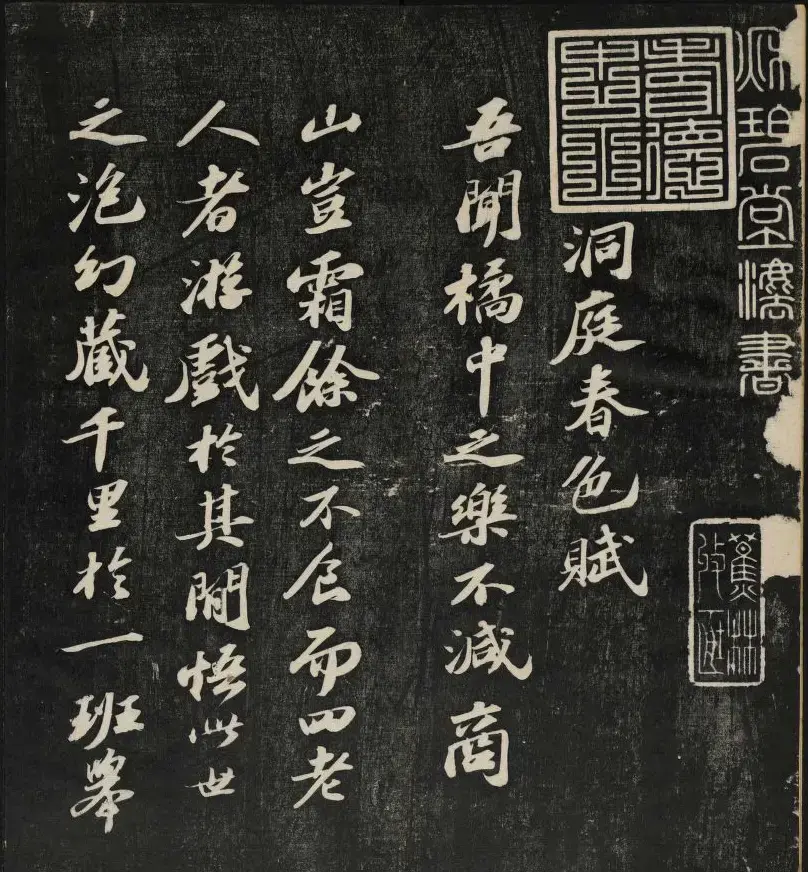 秋碧堂法書
洞庭春色賦
吾聞橘中之樂不減商
山豈霜餘之不食而四老
人者游戲於其閒悟此世
之泡幻藏千里於一班舉